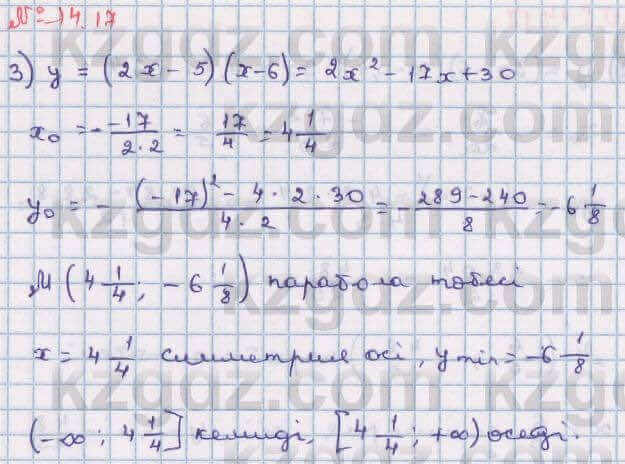 № 14.17
3) y = (2x - 5)(x-6) = 2x² - 17x + 30
x₀ = - -17/2·2 = 17/4 = 4 1/4
y₀ = - (-17)² - 4·2·30/4·2 = - 289-240/8 = -6 1/8
M (4 1/4; -6 1/8) парабола төбесі
x = 4 1/4 симметрия осі, y min = -6 1/8
(-∞; 4 1/4] кемиді, [4 1/4; +∞) өседі.
kzgdz.com